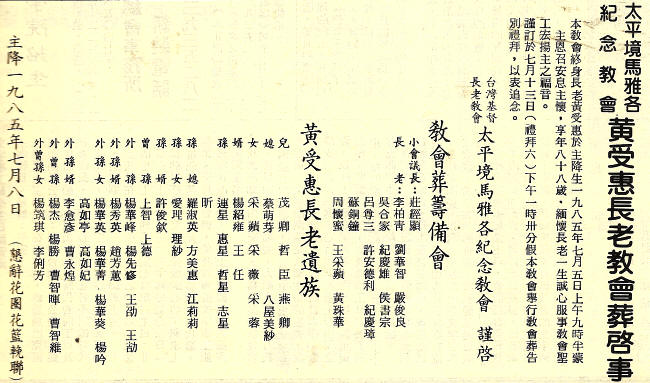 太平境馬雅各紀念教會 黃受惠長老教會葬啓事
本敎會終身長老黃受惠於主降生一九八五年七月五日上午九時半蒙
主恩召安息主懷,享年八十八歲,緬懷長老一生誠心服事敎會聖
工宏揚主之福音。
謹訂於七月十三日(禮拜六)下午一時卅分假本敎會舉行敎會葬告
別禮拜,以表追念。
台灣基督長老敎會 太平境馬雅各紀念敎會 謹啓
敎會葬籌備會
小會議長:莊經顯
長老:李柏青 劉華智 嚴俊良
吳合家 紀慶雄 侯書宗
呂尊三 許安德利 紀慶璋
蘇銅鐘
周懷蜜 王采蘋 黃珠華
黃受惠長老遺族
兒 茂卿 哲臣 燕卿
媳 蔡萌芽 八屋美紗
女 采蘋 采薇 采蓉
婿 楊紹維 王任
孫 連星 惠星 哲星 志星
昕
孫媳 羅淑英 方美惠 江莉莉
孫女 愛理 理紗
孫婿 許俊欽
曾孫 上智 上德
外孫 楊華峰 楊先修 王劭 王劼
外孫媳 楊秀英 趙芳蕙
外孫女 楊華英 楊華菁 楊華葵 楊吟
高如亭 高如妃
外孫婿 李愈彥 曹永煌
外曾孫 楊杰 楊勝 曹智暉 曹智維
外曾孫女 楊筑琪 李俐芳
主降一九八五年七月八日 (懇辭花圈花籃輓聯)